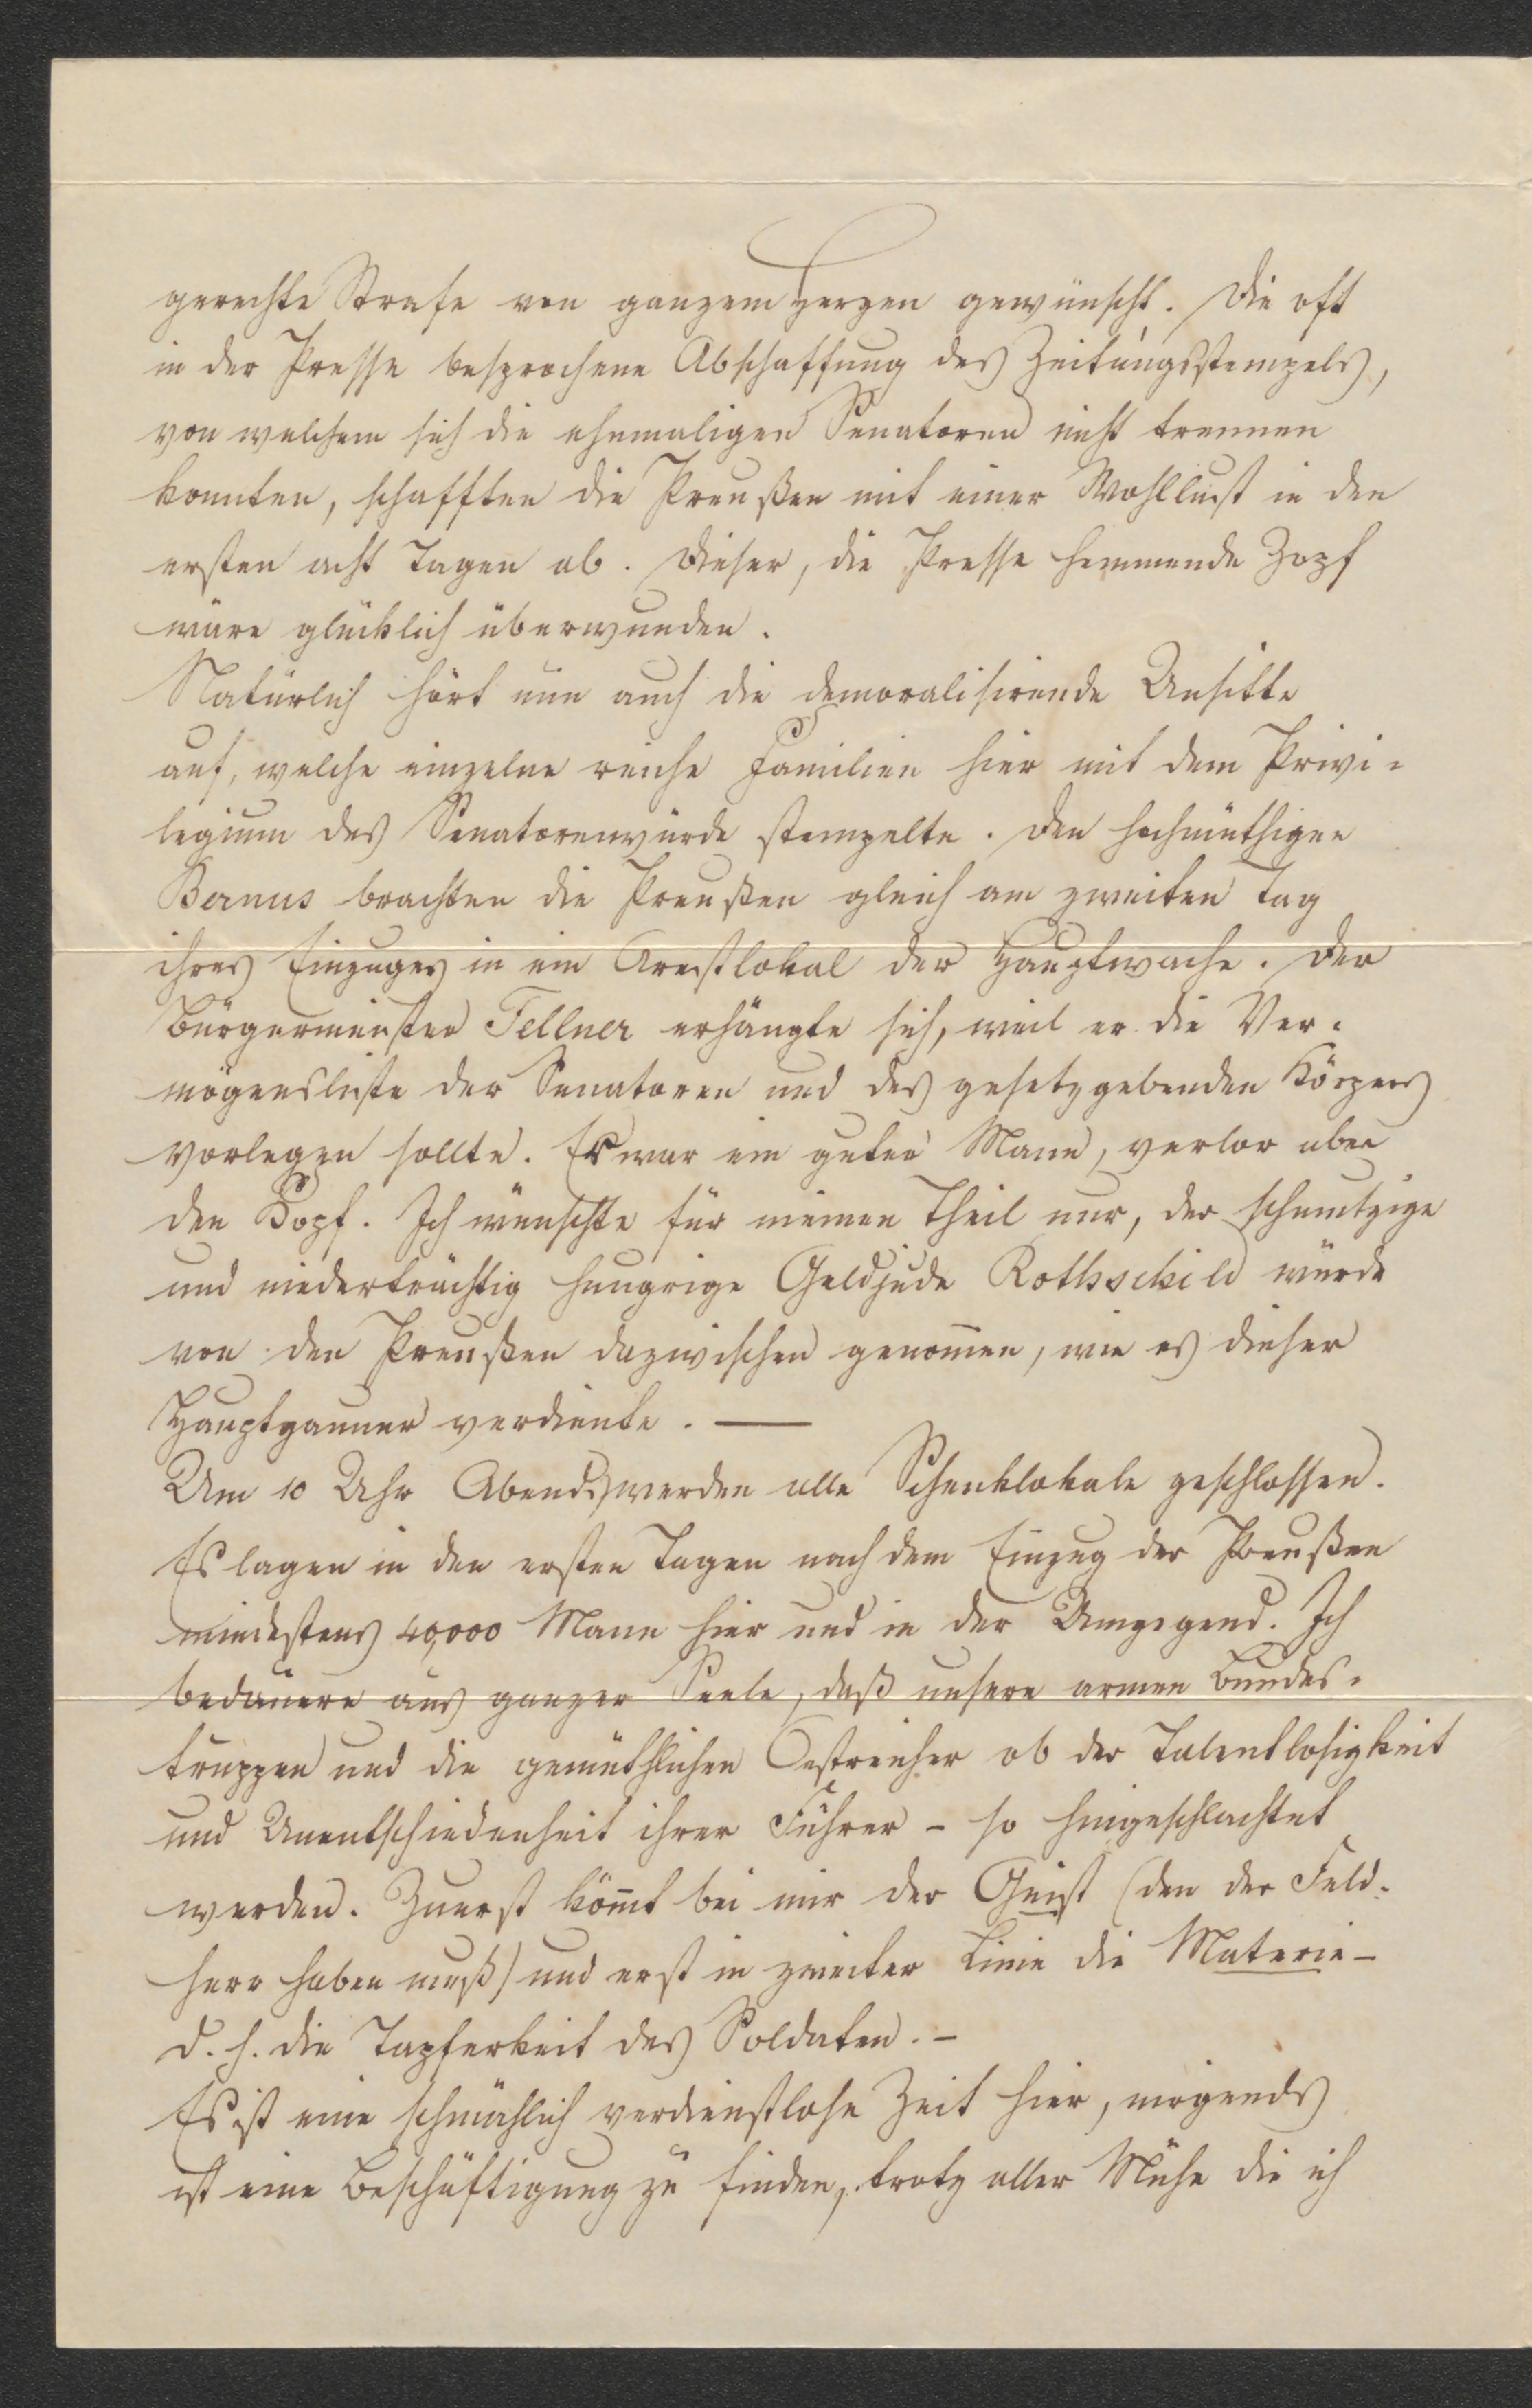 gerechte Strafe von ganzem Herzen gewünscht. Die oft
in der Presse besprochene Abschaffung des Zeitungsstempels,
von welchem sich die ehemaligen Senatoren nicht trennen
konnten, schafften die Preußen mit einer Wohllust in den
ersten acht Tagen ab. Dieser, die Presse hemmende Zopf
wäre glücklich überwunden.
Natürlich hört nun auch die demoralisirende Unsitte
auf, welche einzelne reiche Familien hier mit dem Privi-
legium des Senatorenwürde stempelte. Den hochmüthigen
Bernus brachten die Preußen gleich am zweiten Tag
ihres Einzuges in ein Arestlokal der Hauptwache. Der
Bürgermeister Fellner erhängte sich, weil er die Ver-
mögensliste der Senatoren und des gesetzgebenden Körpers
vorlegen sollte. Er war ein guter Mann, verlor aber
den Kopf. Ich wünschte für meinen Theil nur, der schmutzige
und niederträchtig hungrige Geldjude Rothschild würde
von den Preußen dazwischen genom̄en, wie es dieser
Hauptgauner verdiente. —
Um 10 Uhr Abends werden alle Schenklokale geschlossen.
Es lagen in den ersten Tagen nach dem Einzug der Preußen
mindestens 40,000 Mann hier und in der Umgegend. Ich
bedauere aus ganzer Seele, daß unsere armen Bundes-
truppen und die gemüthlichen Oestreicher ob der Talentlosigkeit
und Unentschiedenheit ihrer Führer – so hingeschlachtet
werden. Zuerstköm̄t bei mir der Geist (den der Feld-
herr haben muß) und erst in zweiter Linie die Materie –
d. h. die Tapferkeit des Soldaten. –
Es ist eine schmählich verdienstlose Zeit hier, nirgends
ist eine Beschäftigung zu finden, trotz aller Mühe die ich